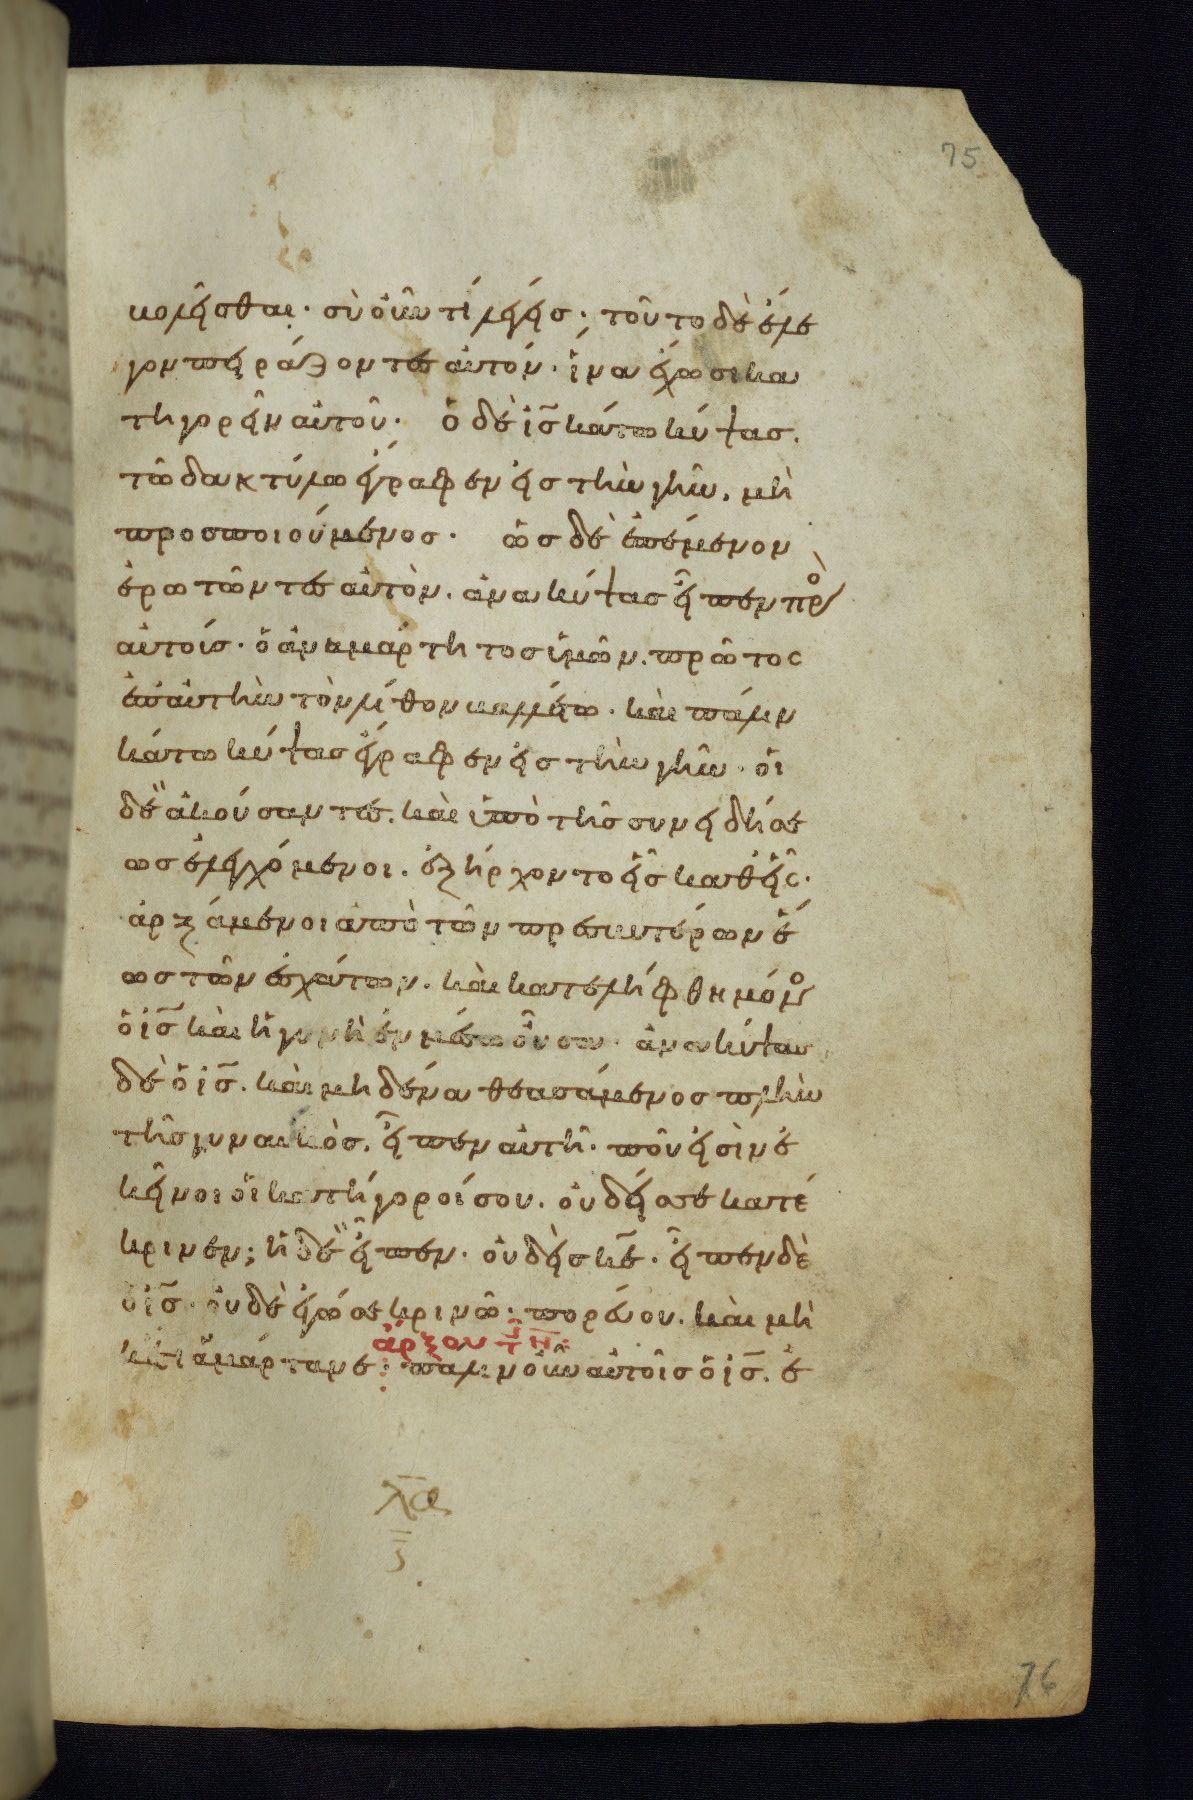 75
κολεῖσθαι· σὺ οὖν τί λέγεις· τοῦτο δὲ ἔλε
γον πειράζοντες αὐτόν· ἵνα ἔχωσι κα
τηγορεῖν αὐτοῦ· ὁ δὲ ις̅ κάτω κύψας.
τῶ δακτύλω ἔγραφεν εἰς τὴν γῆν. μὴ
προσποιούμενος· ὡς δὲ ἐπέμενον
ἐρωτῶντες αὐτὸν. ἀνακύψας εἶπεν πρὸς
αὐτοίς· ὁ ἀναμάρτητος ὑμῶν. πρῶτος
ἐπ αὐτὴν τὸν λίθον βαλλέτω· καὶ πάλιν
κάτω κύψας ἔγραφεν εἰς τὴν γῆν· οἱ
δὲ ἀκούσαντες. καὶ ὑπὸ τῆς συνειδήσε
ως ἐλεγχόμενοι. ἐξήρχοντο εἷς καθεῖς·
ἀρξάμενοι ἀπὸ τῶν πρεσβυτέρων ἕ
ως τῶν ἐσχάτων. καὶ κατελήφθη μόνος
ὁ ις̅ καὶ ἡ γυνὴ ἐν μέσω οὖσα· ἀνακύψας
δὲ ὁ ις̅. καὶ μηδένα θεασάμενος πλὴν
τῆς γυναικὸς. εἶπεν αὐτῆ· ποῦ εἰσὶν ἐ
κεῖνοι οἱ κατήγοροί σου. οὐδείς σε κατέ
κρινεν; ἡ δὲ εἶπεν· οὐδεὶς κε̅· εἶπεν δὲ
ὁ ις̅· οὐδὲ ἐγώ σε κρινῶ· πορεύου. καὶ μὴ
ἀρξου τ η̅:
κέτι ἁμάρτανε· πάλιν οὖν αὐτοῖς ὁ ις̅. ἐ
λα̅
76